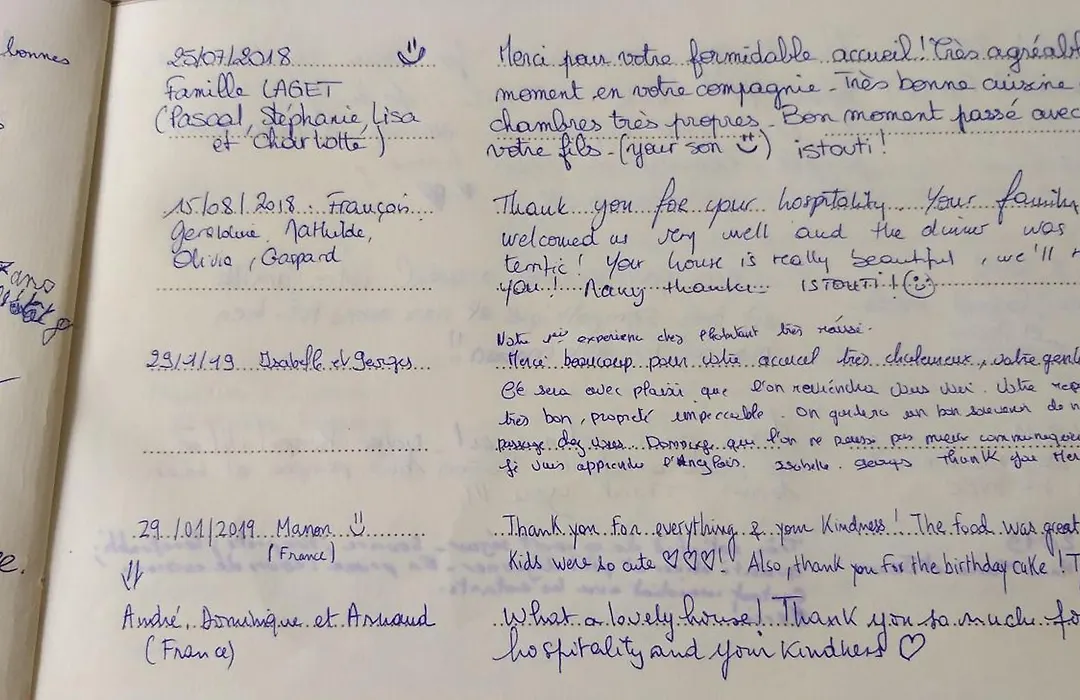 bonnes
25/07/2018
Famille LAGET
(Pascal, Stéphanie, Lisa
et Charlotte)
Merci pour votre formidable accueil! Très agréabl
moment en votre compagnie - Très bonne cuisine
chambres très propres. Bon moment passé avec
votre fils - (your son) istouti!
15/08/2018. François
Géraldine, Mathilde,
Olivia, Gaspard
Thank you for your hospitality. Your family
welcomed us very well and the dinner was
terrific! Your house is really beautiful, we'll
you! Many thanks ISTOUTI!
29/1/19 Isabelle et Georges
Notre experience chez l'habitant très réussi.
Merci beaucoup pour votre accueil très chaleureux, votre gentil
Ce sera avec plaisi que l'on reviendra vous voir. Votre rep
très bon, propreté impeccable. On gardera un bon souvenir de n
passage chez vous. Dommage que l'on ne puisse pas mieux communiquer
Je vais apprendre l'Anglais. Isabelle. Georges Thank you Mer
29/01/2019 Manon
(France)
Thank you for everything & your kindness! The food was great
Kids were so cute ♡♡♡! Also, thank you for the birthday cake! T
André, Dominique et Arnaud
(France)
What a lovely house! Thank you so much fo
hospitality and your kindness ♡